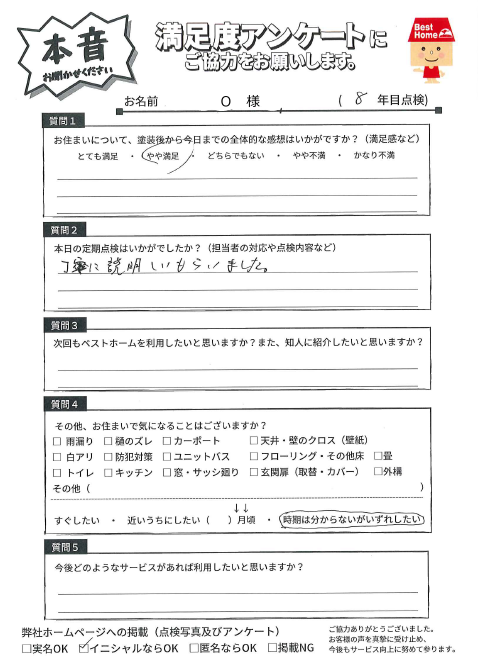 本音
お聞かせください
満足度アンケートに
ご協力をお願いします。
Best Home
お名前 O 様 ( 8 年目点検)
質問1
お住まいについて、塗装後から今日までの全体的な感想はいかがですか？（満足感など）
とても満足 ・ やや満足 ・ どちらでもない ・ やや不満 ・ かなり不満
質問2
本日の定期点検はいかがでしたか？（担当者の対応や点検内容など）
丁寧に説明しいもらいました。
質問3
次回もベストホームを利用したいと思いますか？また、知人に紹介したいと思いますか？
質問4
その他、お住まいで気になることはございますか？
□ 雨漏り □ 樋のズレ □ カーポート □ 天井・壁のクロス（壁紙）
□ 白アリ □ 防犯対策 □ ユニットバス □ フローリング・その他床 □畳
□ トイレ □ キッチン □ 窓・サッシ廻り □ 玄関扉（取替・カバー） □外構
その他（ ）
↓↓
すぐしたい ・ 近いうちにしたい（ ）月頃 ・ 時期は分からないがいずれしたい
質問5
今後どのようなサービスがあれば利用したいと思いますか？
弊社ホームページへの掲載（点検写真及びアンケート）
□実名OK ☑イニシャルならOK □匿名ならOK □掲載NG
ご協力ありがとうございました。
お客様の声を真摯に受け止め、
今後もサービス向上に努めて参ります。